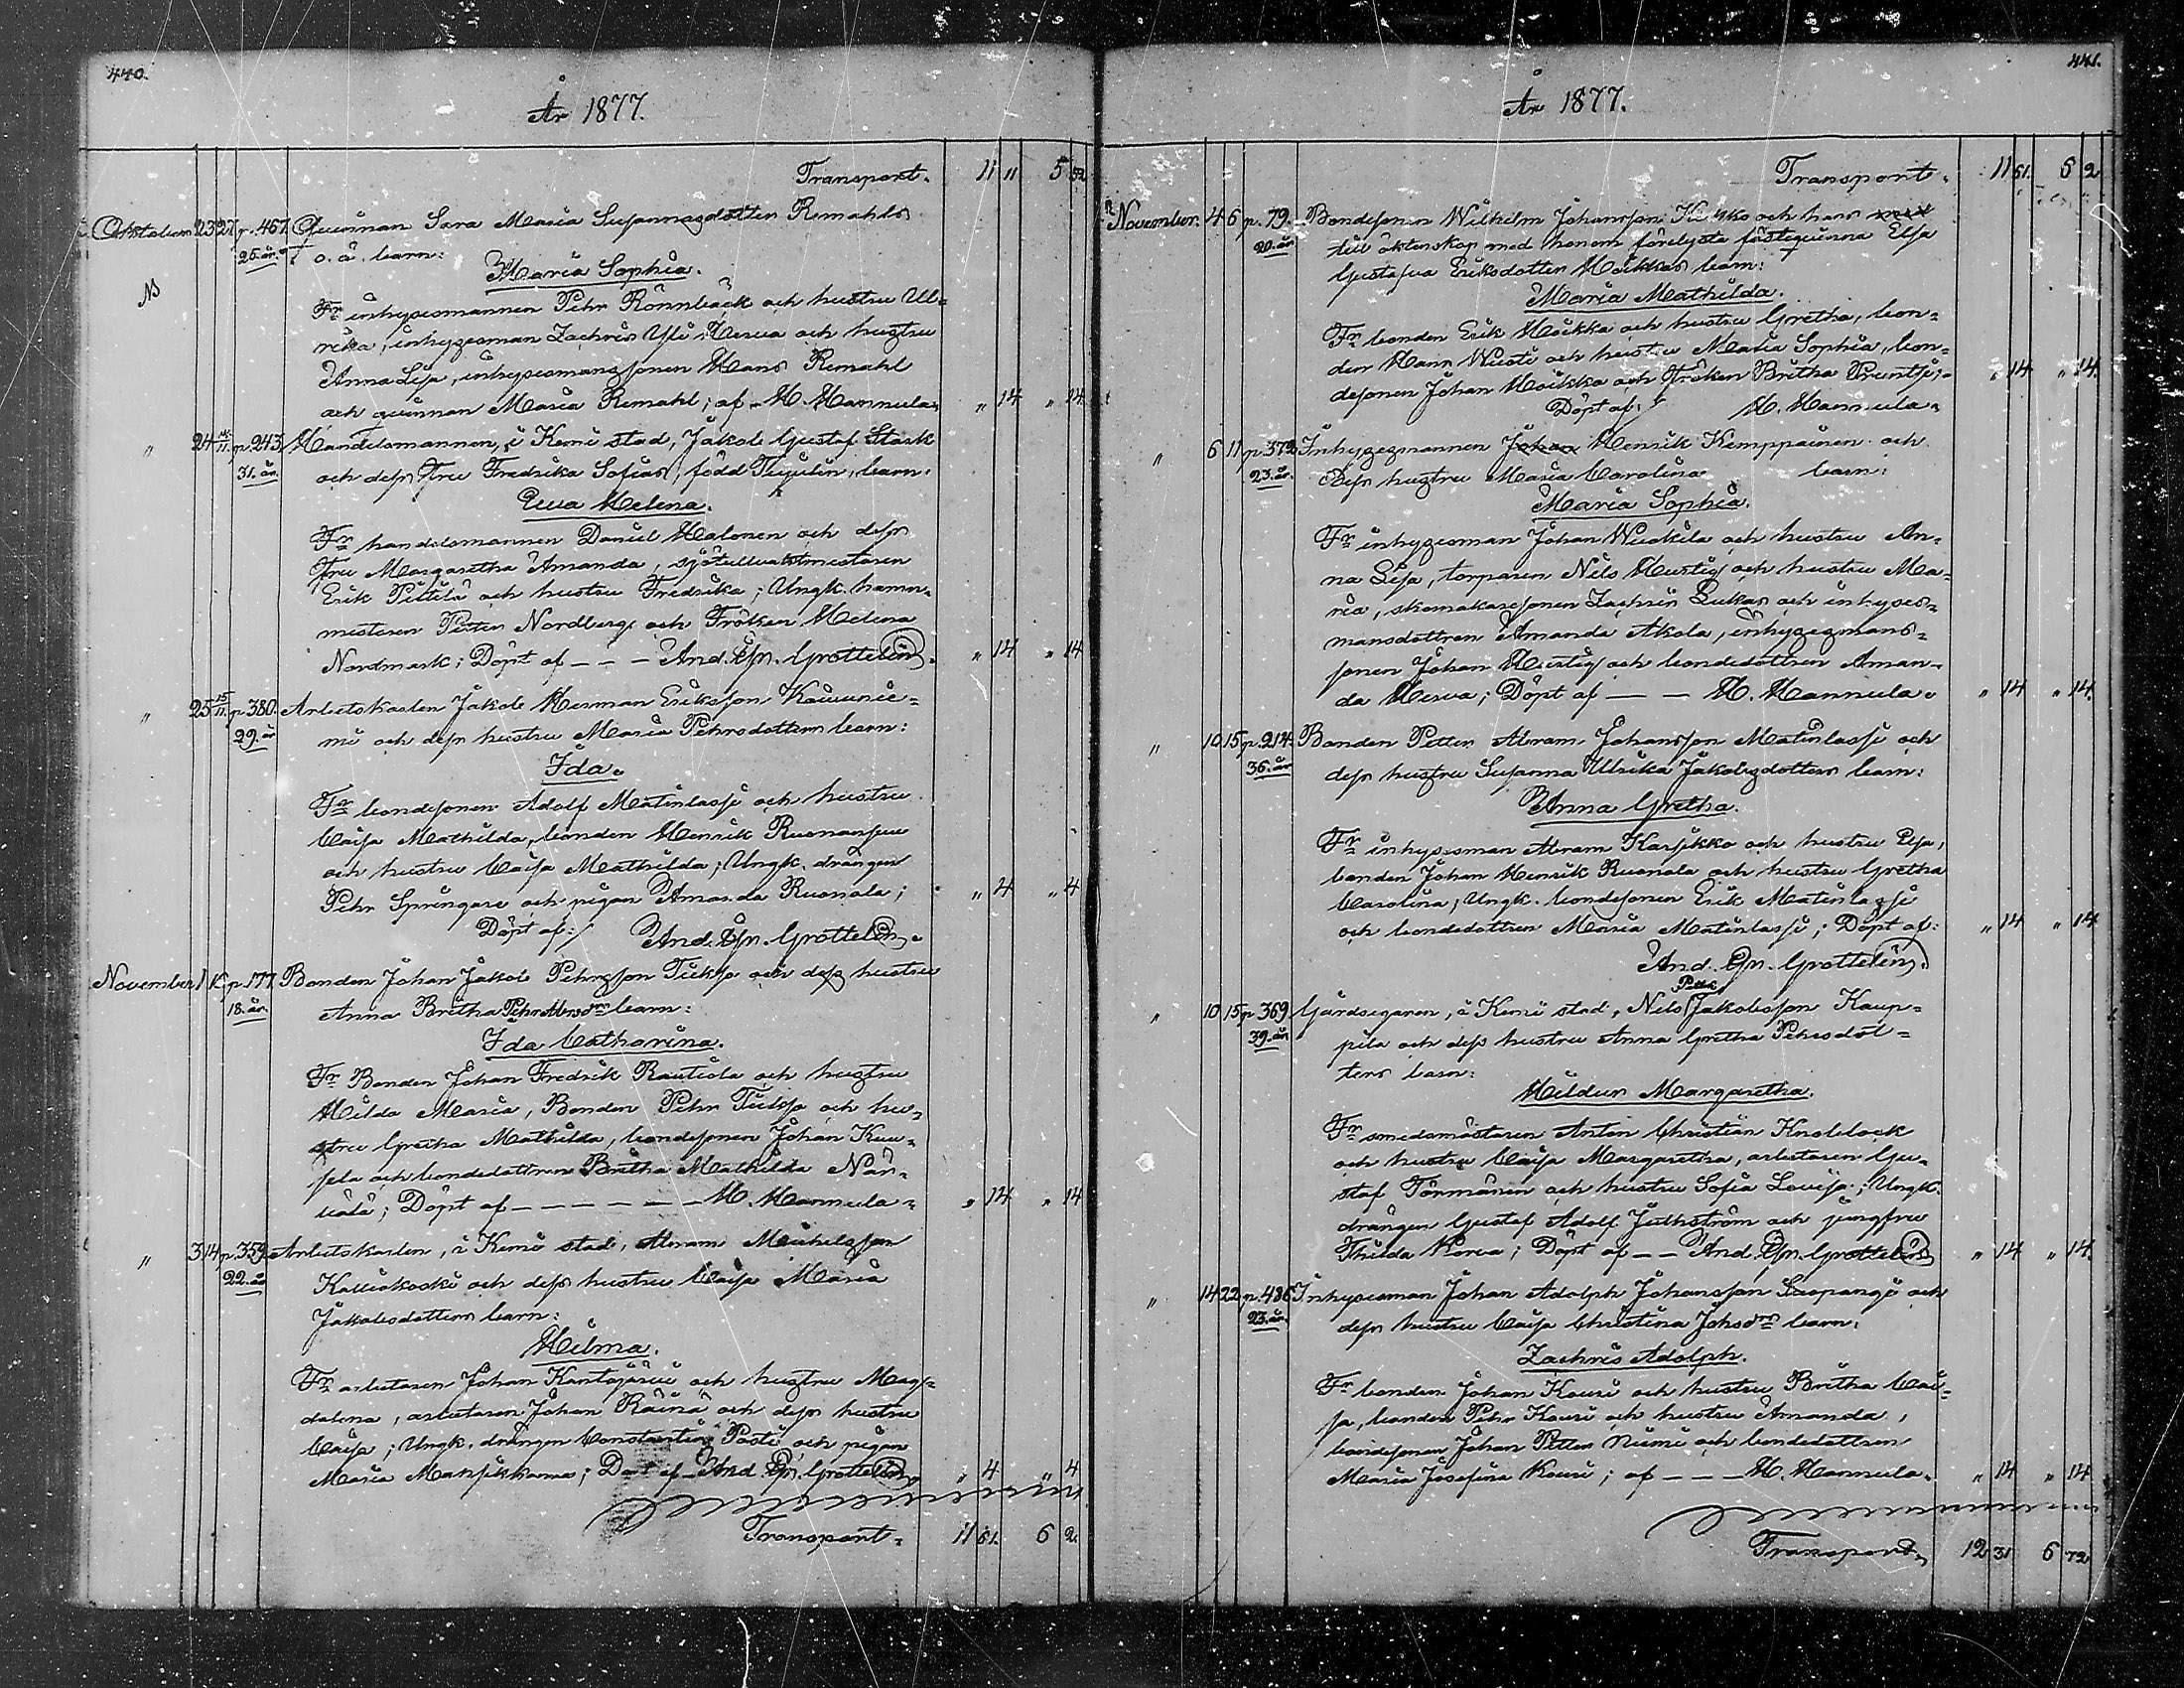 440.
År 1877.
Transport. 11 11 5 52
Oktober 23 27 p. 467. Quinnan Sara Maria Susannasdotter Remahls
25. år. o. ä. barn:
Maria Sophia.
NB
Fr inhysesmannen Pehr Rönnbäck och hustru Ul=
rika, inhysesman Zachris Yli Herva och hustru
Anna Lisa, inhysesmanssonen Hans Remahl
och quinnan Maria Remahl; af H. Hannula. " 14 " 14.
" 24 11. p. 243. Handelsmannen, i Kemi stad, Jakob Gustaf Stark
31. år. och dess Fru Fredrika Sofias, född barn:
Eva Helena.
Fr handelsmannen Daniel Halonen och dess
Fru Margaretha Amanda, sjötullvaktmästaren
Erik Pittilä och hustru Fredrika; Ungk. hamn-
mästaren Petter Nordberg och Fröken Helena
Nordmark; Döpt af - - - And. Gr. Grottelin. " 14 " 14
" 25 15/11. p. 380. Arbetskarlen Jakob Herman Eriksson Kauunie=
29. år mi och dess hustru Maria Pehrsdotters barn:
Ida.
Fr bondesonen Adolf Matinlassi och hustru
Caisa Mathilda, bonden Henrik Ruonansuu
och hustru Caisa Mathilda; Ungk. drängen
Pehr Springare och pigan Amanda Ruonala; " 4 " 4
Döpt af: And. Gr. Grottelin.
November 1 p. 177. Bonden Johan Jakob Pehrsson Tiikso och dess hustru
18. år. Anna Britha Pehr barn:
Ida Catharina.
Fr Bonden Johan Fredrik Rautiola och hustru
Hilda Maria, Bonden Pehr Tiikso och hu=
stru Gretha Mathilda, bondesonen Johan Kuu=
sela och bondedottren Britha Mathilda När=
välä; Döpt af - - - - - - H. Hannula. " 14 " 14
" 3 14 p. 359. Arbetskarlen, i Kemi stad, Abram Michelsson
22. år Kalliokoski och dess hustru Caisa Maria
Jakobsdotters barn:
Hilma.
Fr arbetaren Johan Kantojärvi och hustru Mag=
dalena, arbetaren Johan Räinä och dess hustru
Caisa; Ungk. drängen Constantin Posti och pigan
Maria Mansikkamaa; Döpt af And. Gr. Grottelin. " 4 " 4
Transport. 11 61. 6 2.
441.
År 1877.
Transport. 11 61. 6 2
November. 4 6 p. 79. Bondesonen Wilhelm Johansson och hans
20. år. till äktenskap med honom förelysta fästequinna Elsa
Gustafva Eriksdotter Hoikkas barn:
Maria Mathilda.
Fr bonden Erik Hoikka och hustru Gretha, bon=
den Hans Wuoti och hustru Maria Sophia, bon=
desonen Johan Hoikka och Fröken Britha Pruntsi; " 14 " 14.
Döpt af: H. Hannula.
" 6 11 p. 372. Inhysesmannen Johan Henrik Kemppainen och
23. år. dess hustru Maria Carolina barn:
Maria Sophia.
Fr inhysesman Johan Wiukila och hustru An=
na Lisa, torparen Nils Hurtig och hustru Ma=
ria, skomakaresonen Zachris Lukas och inhyses=
mansdottren Amanda Akola, inhysesmans=
sonen Johan Hurtig och bondedottren Aman=
da Herva; Döpt af - - H. Hannula. " 14 " 14.
" 10 15 p. 214. Bonden Petter Abram Johansson Matinlassi och
36. år dess hustru Susanna Ulrika Jakobsdotters barn:
Anna Gretha.
Fr inhysesman Abram Karsikko och hustru Elsa,
bonden Johan Henrik Ruonala och hustru Gretha
Carolina; Ungk. bondesonen Erik Matinlassi
och bondedottren Maria Matinlassi; Döpt af: " 14 " 14
And. Gr. Grottelin.
" 10 15 p. 369. Gårdsegaren, i Kemi stad, Nils Jakobsson Kaup=
39. år. pila och dess hustru Anna Gretha Pehrsdot=
ters barn:
Hildur Margaretha.
Fr smedsmästaren Anton Christian Knoblock
och hustru Caisa Margaretha, arbetaren Gu=
staf Törmänen och hustru Sofia Lovisa; Ungk.
drängen Gustaf Adolf Juthström och jungfru
Thilda Korva; Döpt af - - And. Gr. Grottelin " 14 " 14.
" 14 22 p. 486. Inhysesman Johan Adolph Johansson Laopangi och
23. år. dess hustru Caisa Christina Johsdrs barn:
Zachris Adolph.
Fr bonden Johan Kouri och hustru Britha Cai=
sa, bonden Pehr Kouri och hustru Amanda,
bondesonen Johan Petter Niemi och bondedottren
Maria Josefina Kouri; af - - - H. Hannula. " 14 " 14
Transport. 12 31 6 72